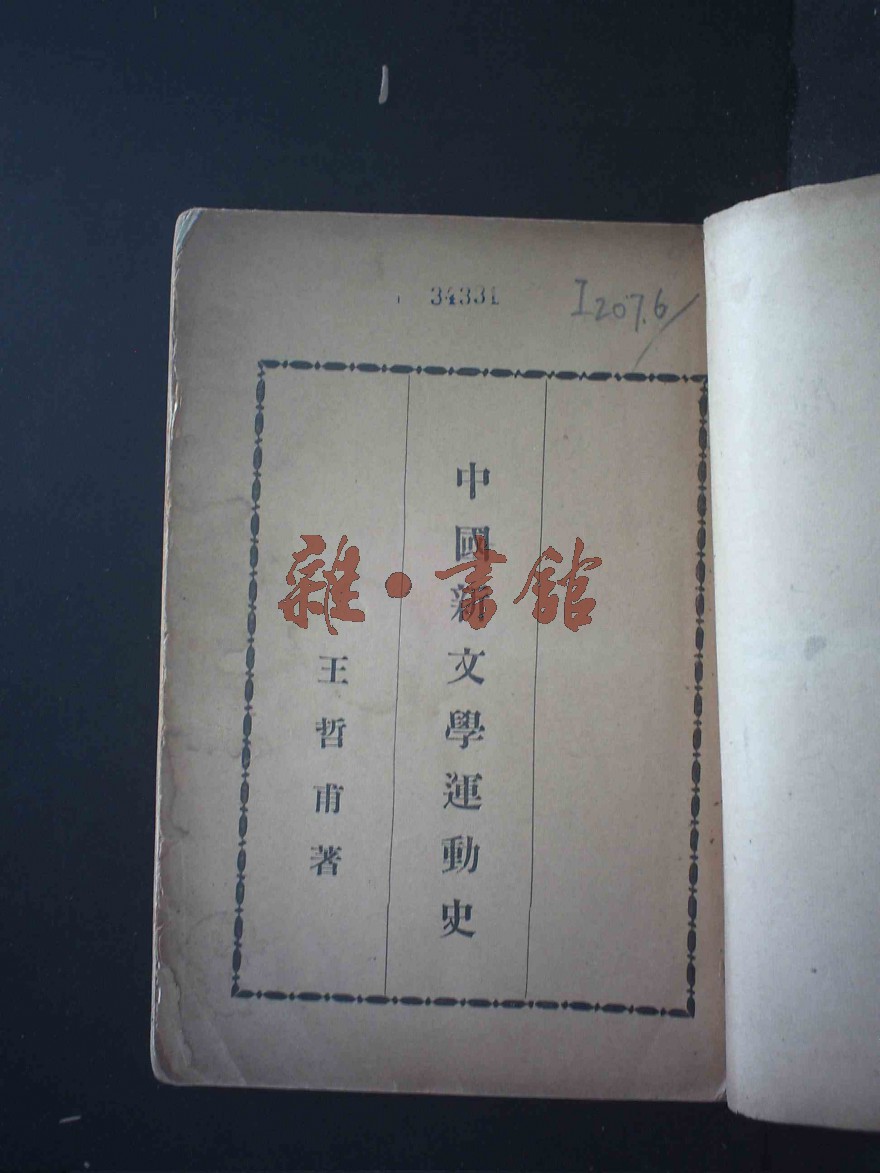 34331
I207.6/
中國新文學運動史
王哲甫著
雜·書館